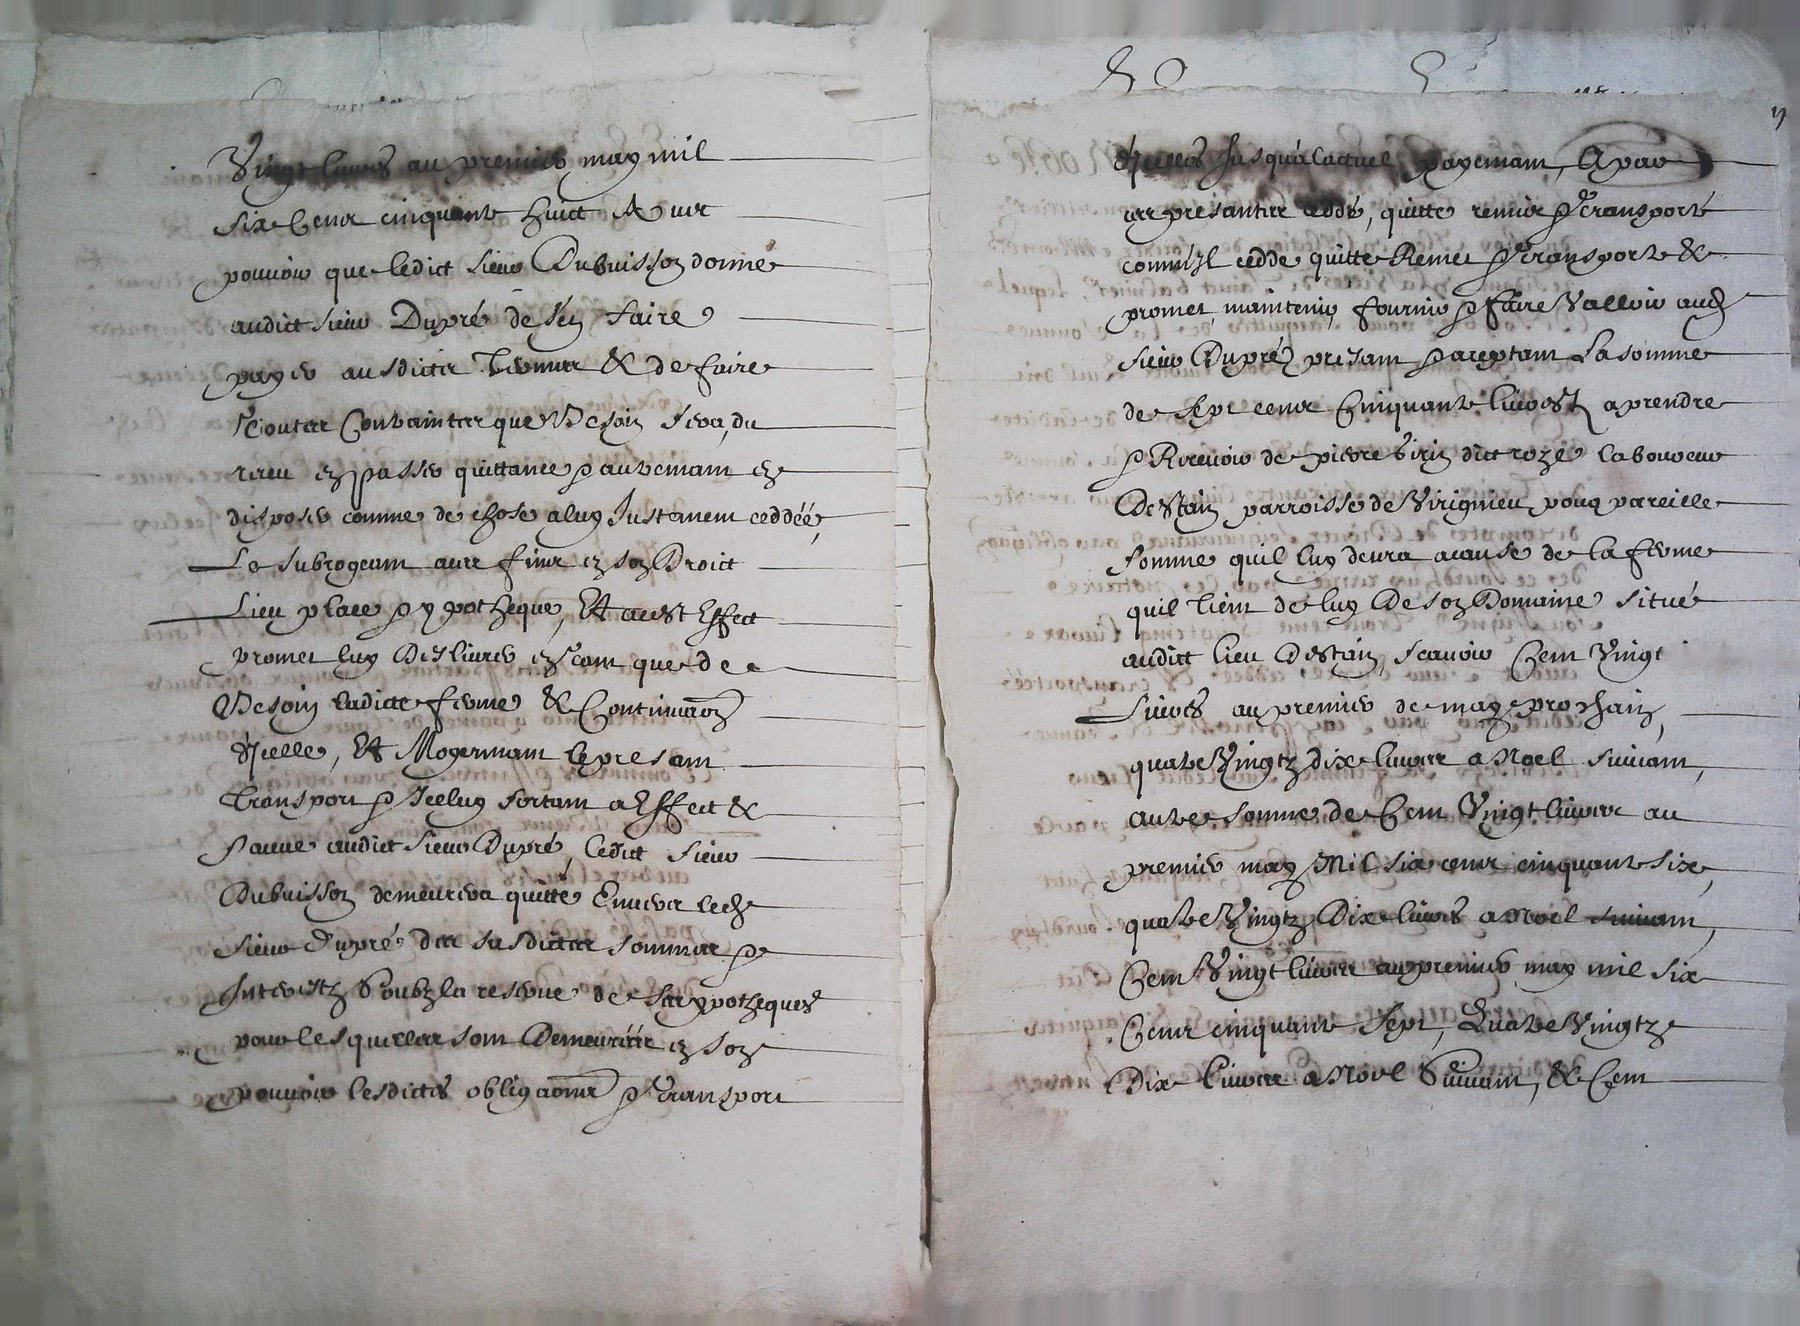 Vingt livres au premier may mil
six cens cinquante huict Avec
pouvoir que ledict sieur Dubuisson donne
audict sieur Dupré de s'en faire
payer ausdicts termes & de faire
touttes contrainctes que besoin sera, du
receu en passer quittance & autrement en
disposer comme de chose a luy Justement ceddéé,
Le subrogeant aux fins en son Droict
Lieu place & ypotheque, Et a cest Effect
promet luy Deslivrer
Besoin ladicte ferme & Continuaon
d'Icelle, Et Moyennant le presant
transport & Icelluy sortant a Effect &
sauve audict sieur Dupré, ledict sieur
Dubuisson demeurera quitte Envers led
sieur Dupré des susdictes sommes &
Interestz Soubz la reserve de ses ypotheques
pour lesquelles sont Demeuréés en son
pouvoir lesdictes obligaons & transport
d'Icelles Jusqu'a l'actuel payemant, A par
ces presantes ceddé, quitté remis & transporté
comm'Il cedde quitte Remet & transporte &
promet maintenir, fournir & faire Valloir aud
sieur Dupré presant & aceptant La somme
de sept cens Cinquante livres a prendre
& Recevoir de pierre dict rozé laboureur
Destain parroisse de Virignieu pour pareille
somme quil luy devra acause de la ferme
quil tient de luy De son Domaine situé
audict lieu Destain, scavoir Cent Vingt
Livres au premier de may prochain,
quatre Vingtz dix livres a Noel suivant,
autre somme de Cent Vingt livres au
premier may Mil six cens cinquante six,
quatre Vingtz Dix livres a Noel suivant,
Cent Vingt livres au premier may mil six
Cens cinquante sept, Quatre Vingtz
Dix livres a Noel Suivant, & Cent